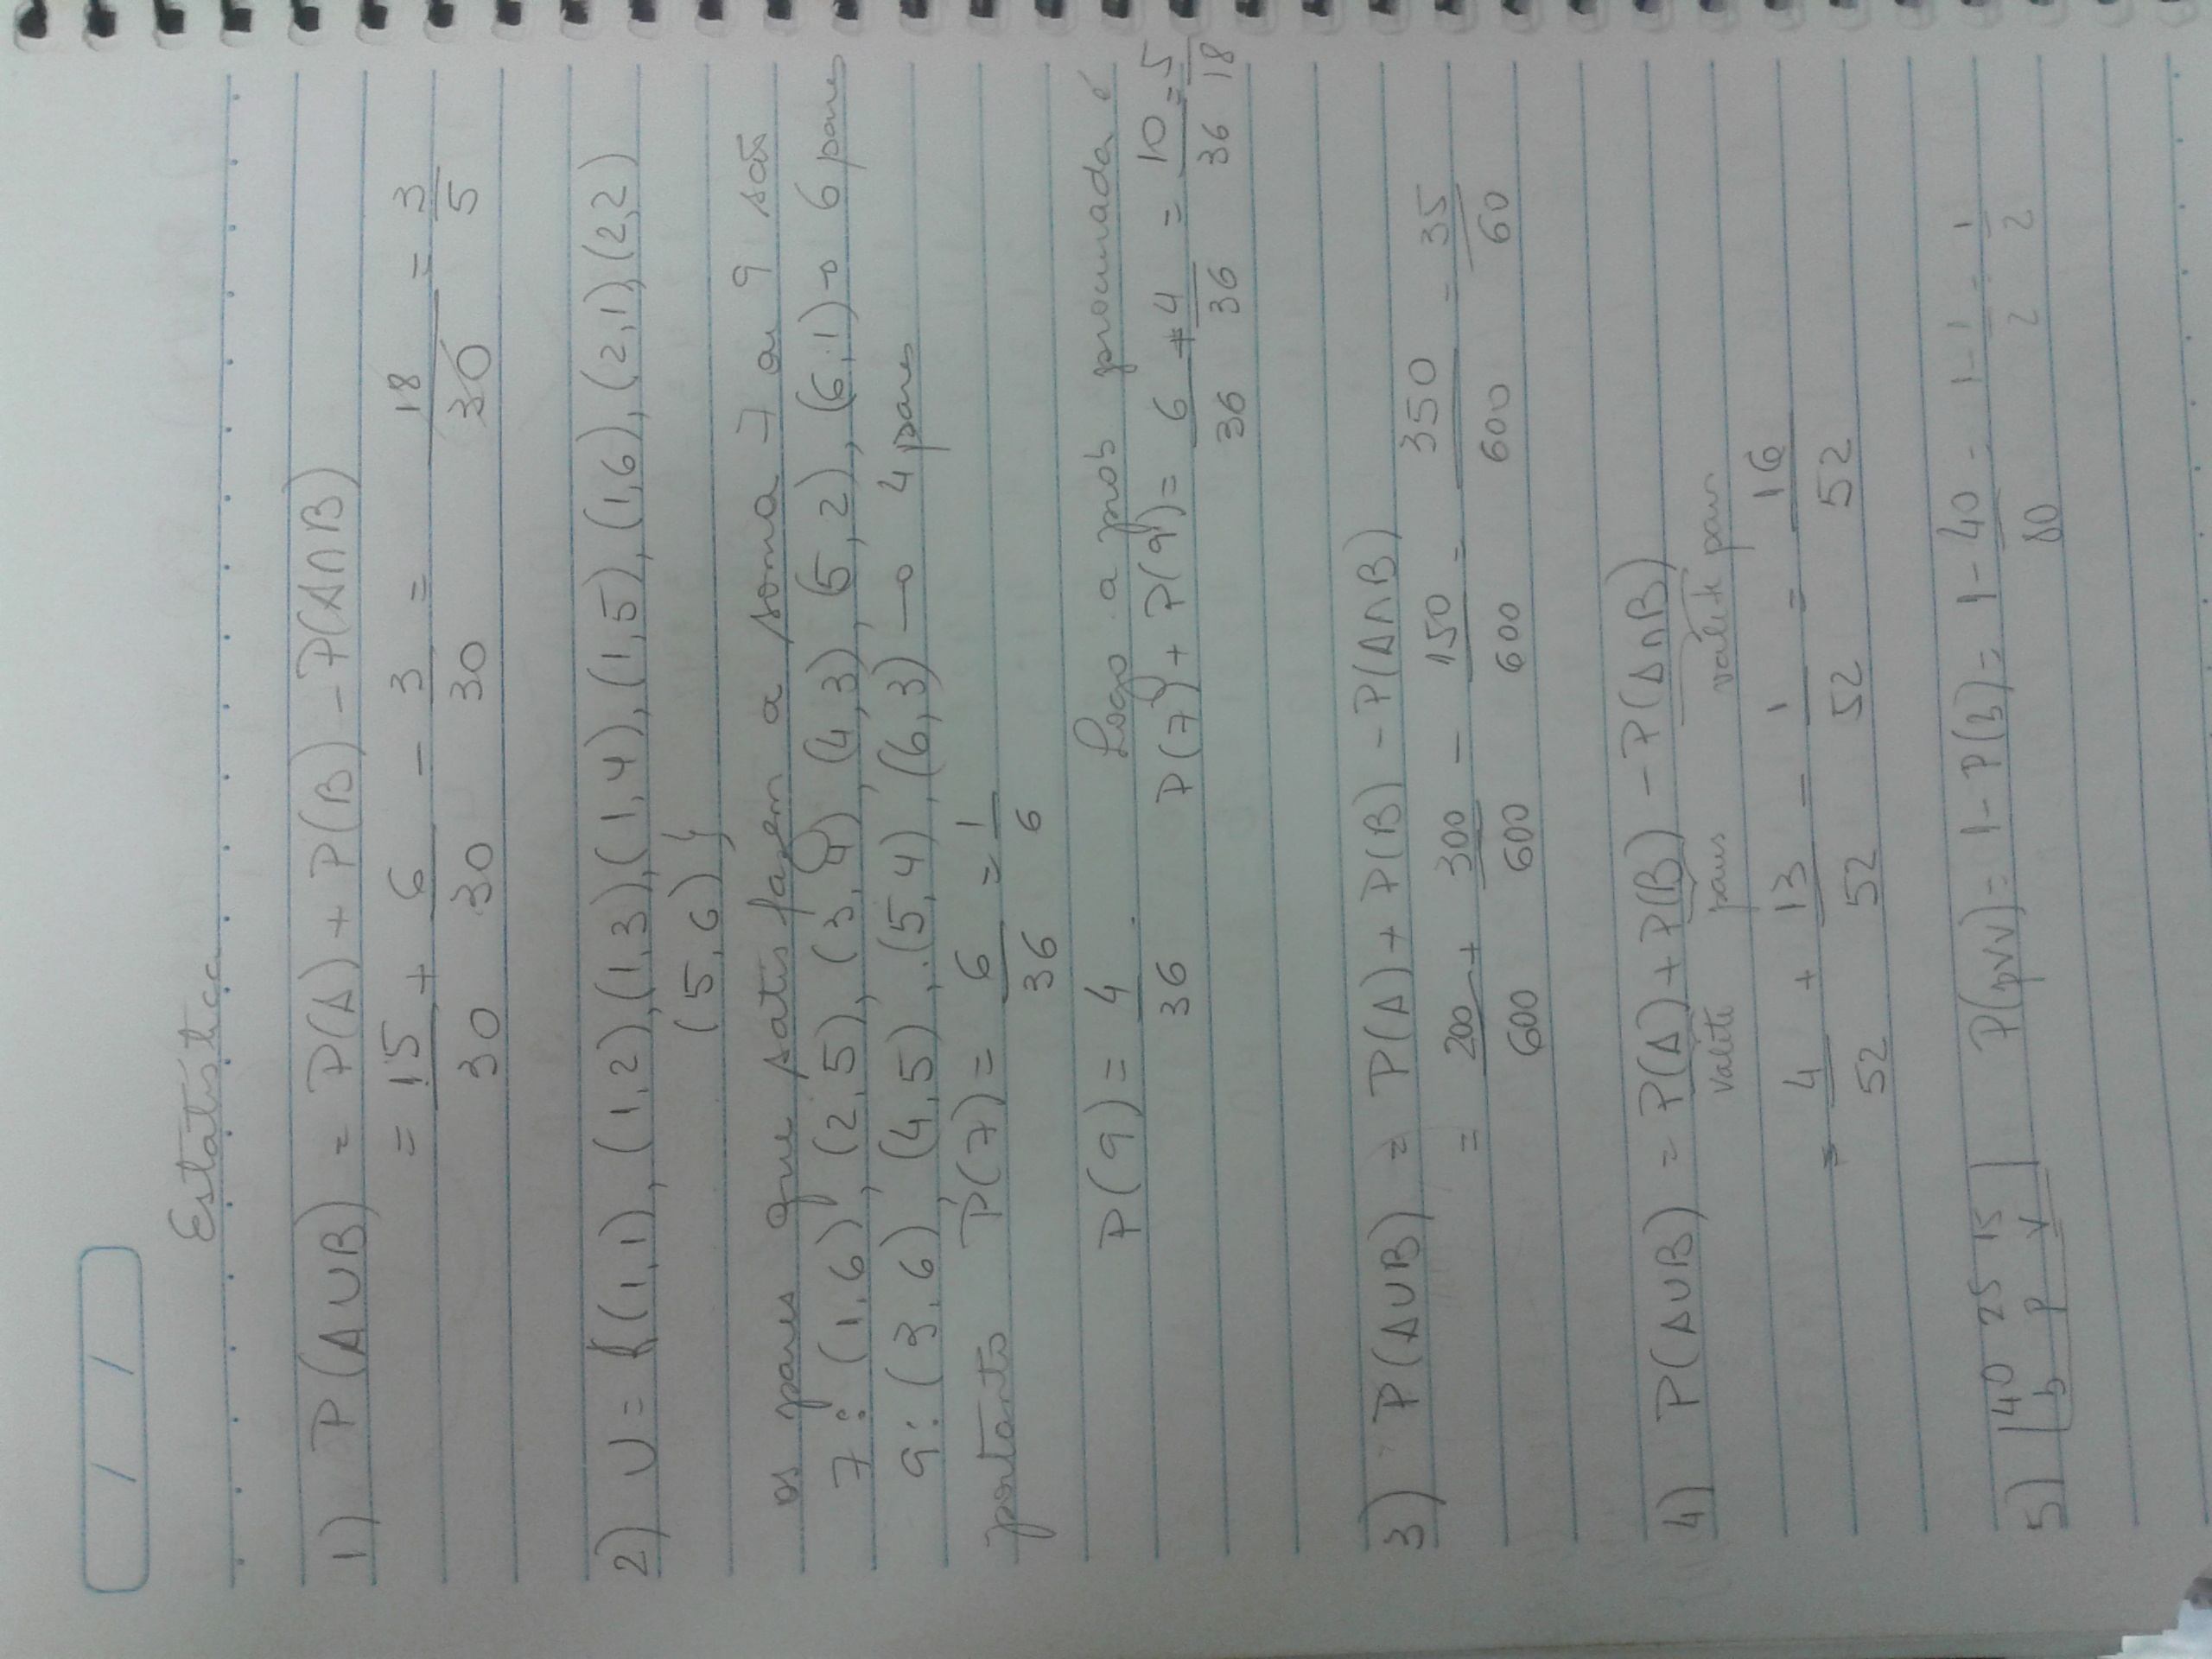 / /
Estatística
1) P(A∪B) = P(A) + P(B) - P(A∩B)
= 15/30 + 6/30 - 3/30 = 18/30 = 3/5
2) U = {(1,1), (1,2), (1,3), (1,4), (1,5), (1,6), (2,1), (2,2)
(5,6)}
os pares que satisfazem a soma 7 ou 9 são
7: (1,6), (2,5), (3,4), (4,3), (5,2), (6,1) → 6 pares
9: (3,6) (4,5), (5,4), (6,3) → 4 pares
portanto P(7) = 6/36 = 1/6
P(9) = 4/36. Logo a prob procurada é
P(7) + P(9) = 6/36 + 4/36 = 10/36 = 5/18
3) P(A∪B) = P(A) + P(B) - P(A∩B)
= 200/600 + 300/600 - 150/600 = 350/600 = 35/60
4) P(A∪B) = P(A) + P(B) - P(A∩B)
valete paus valete paus
= 4/52 + 13/52 - 1/52 = 16/52
5) 40 25 15
b p v P(pVv) = 1 - P(b) = 1 - 40/80 = 1 - 1/2 = 1/2